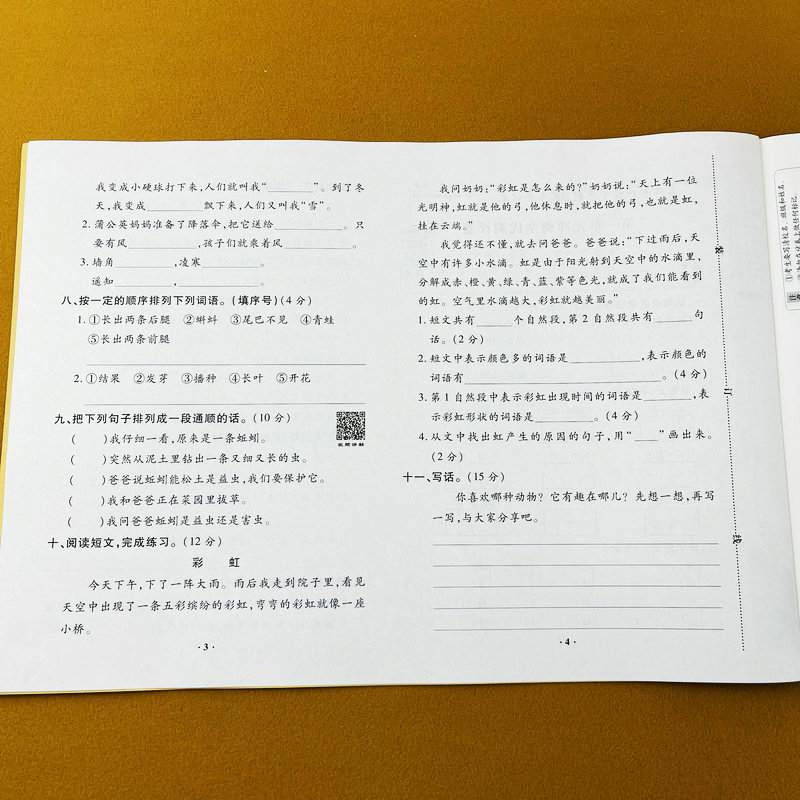 我变成小硬球打下来,人们就叫我“________”。到了冬
天,我变成________飘下来,人们又叫我“雪”。
2. 蒲公英妈妈准备了降落伞,把它送给________。只
要有风________,孩子们就乘着风________。
3. 墙角________,凌寒________。
遥知________,________。
八、按一定的顺序排列下列词语。(填序号)(4 分)
1. ①长出两条后腿 ②蝌蚪 ③尾巴不见 ④青蛙
⑤长出两条前腿
2. ①结果 ②发芽 ③播种 ④长叶 ⑤开花
九、把下列句子排列成一段通顺的话。(10 分)
( )我仔细一看,原来是一条蚯蚓。
( )突然从泥土里钻出一条又细又长的虫。
( )爸爸说蚯蚓能松土是益虫,我们要保护它。
( )我和爸爸正在菜园里拔草。
( )我问爸爸蚯蚓是益虫还是害虫。
视频讲解
十、阅读短文,完成练习。(12 分)
彩 虹
今天下午,下了一阵大雨。雨后我走到院子里,看见
天空中出现了一条五彩缤纷的彩虹,弯弯的彩虹就像一座
小桥。
· 3 ·
我问奶奶:“彩虹是怎么来的?”奶奶说:“天上有一位
光明神,虹就是他的弓,他休息时,就把他的弓,也就是虹,
挂在云端。”
我觉得还不懂,就去问爸爸。爸爸说:“下过雨后,天
空中有许多小水滴。虹是由于阳光射到天空中的水滴里,
分解成赤、橙、黄、绿、青、蓝、紫等色光,就成了我们能看到
的虹。空气里水滴越大,彩虹就越美丽。”
1. 短文共有____个自然段,第 2 自然段共有____句
话。(2 分)
2. 短文中表示颜色多的词语是________,表示颜色的
词语有________________。(4 分)
3. 第 1 自然段中表示彩虹出现时间的词语是______,表
示彩虹形状的词语是______。(4 分)
4. 从文中找出虹产生的原因的句子,用“___”画出来。
(2 分)
十一、写话。(15 分)
你喜欢哪种动物?它有趣在哪儿?先想一想,再写
一写,与大家分享吧。
· 4 ·
装
订
线
①考生要写清校名、班级和姓名